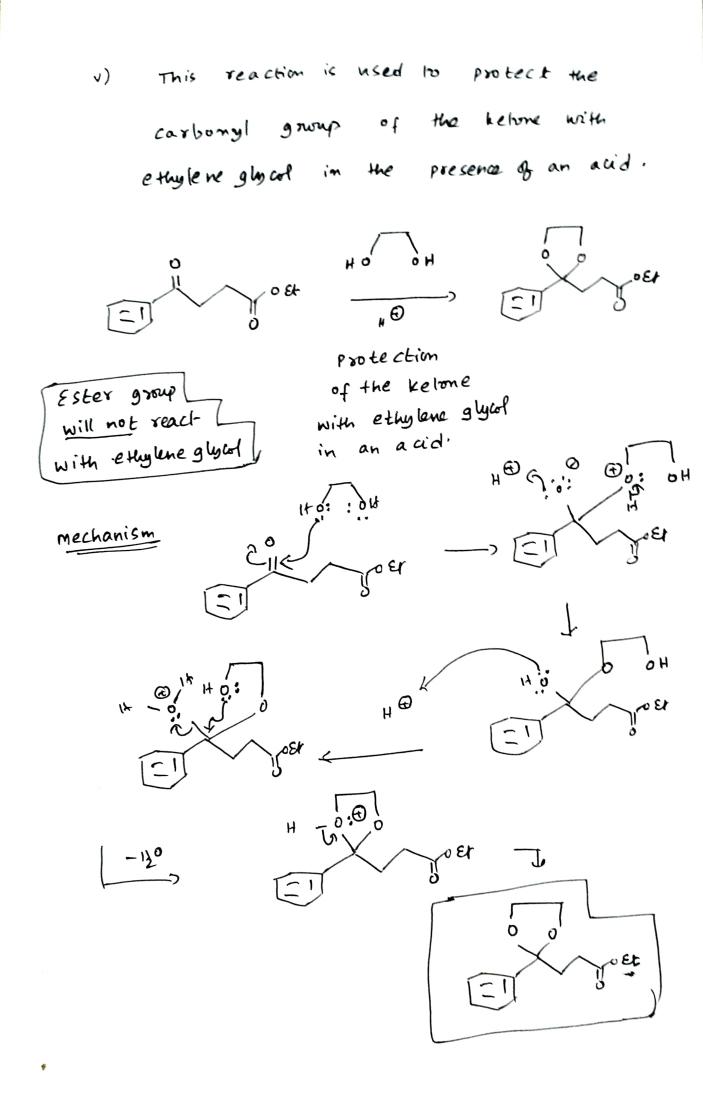 v) This reaction is used to protect the
carbonyl group of the ketone with
ethylene glycol in the presence of an acid.
O
OEt
O
HO OH
H⊕
O O
OEt
O
Ester group
will not react
with ethylene glycol
Protection
of the ketone
with ethylene glycol
in an acid.
mechanism
HO: :OH
O
OEt
O
H⊕
⊖
O
⊕
O:
H
OH
OEt
O
HO
O
OH
OEt
O
H⊕
H
⊕
H
O
HO:
O
OEt
O
-H2O
H
O:⊕
O
OEt
O
O O
OEt
O